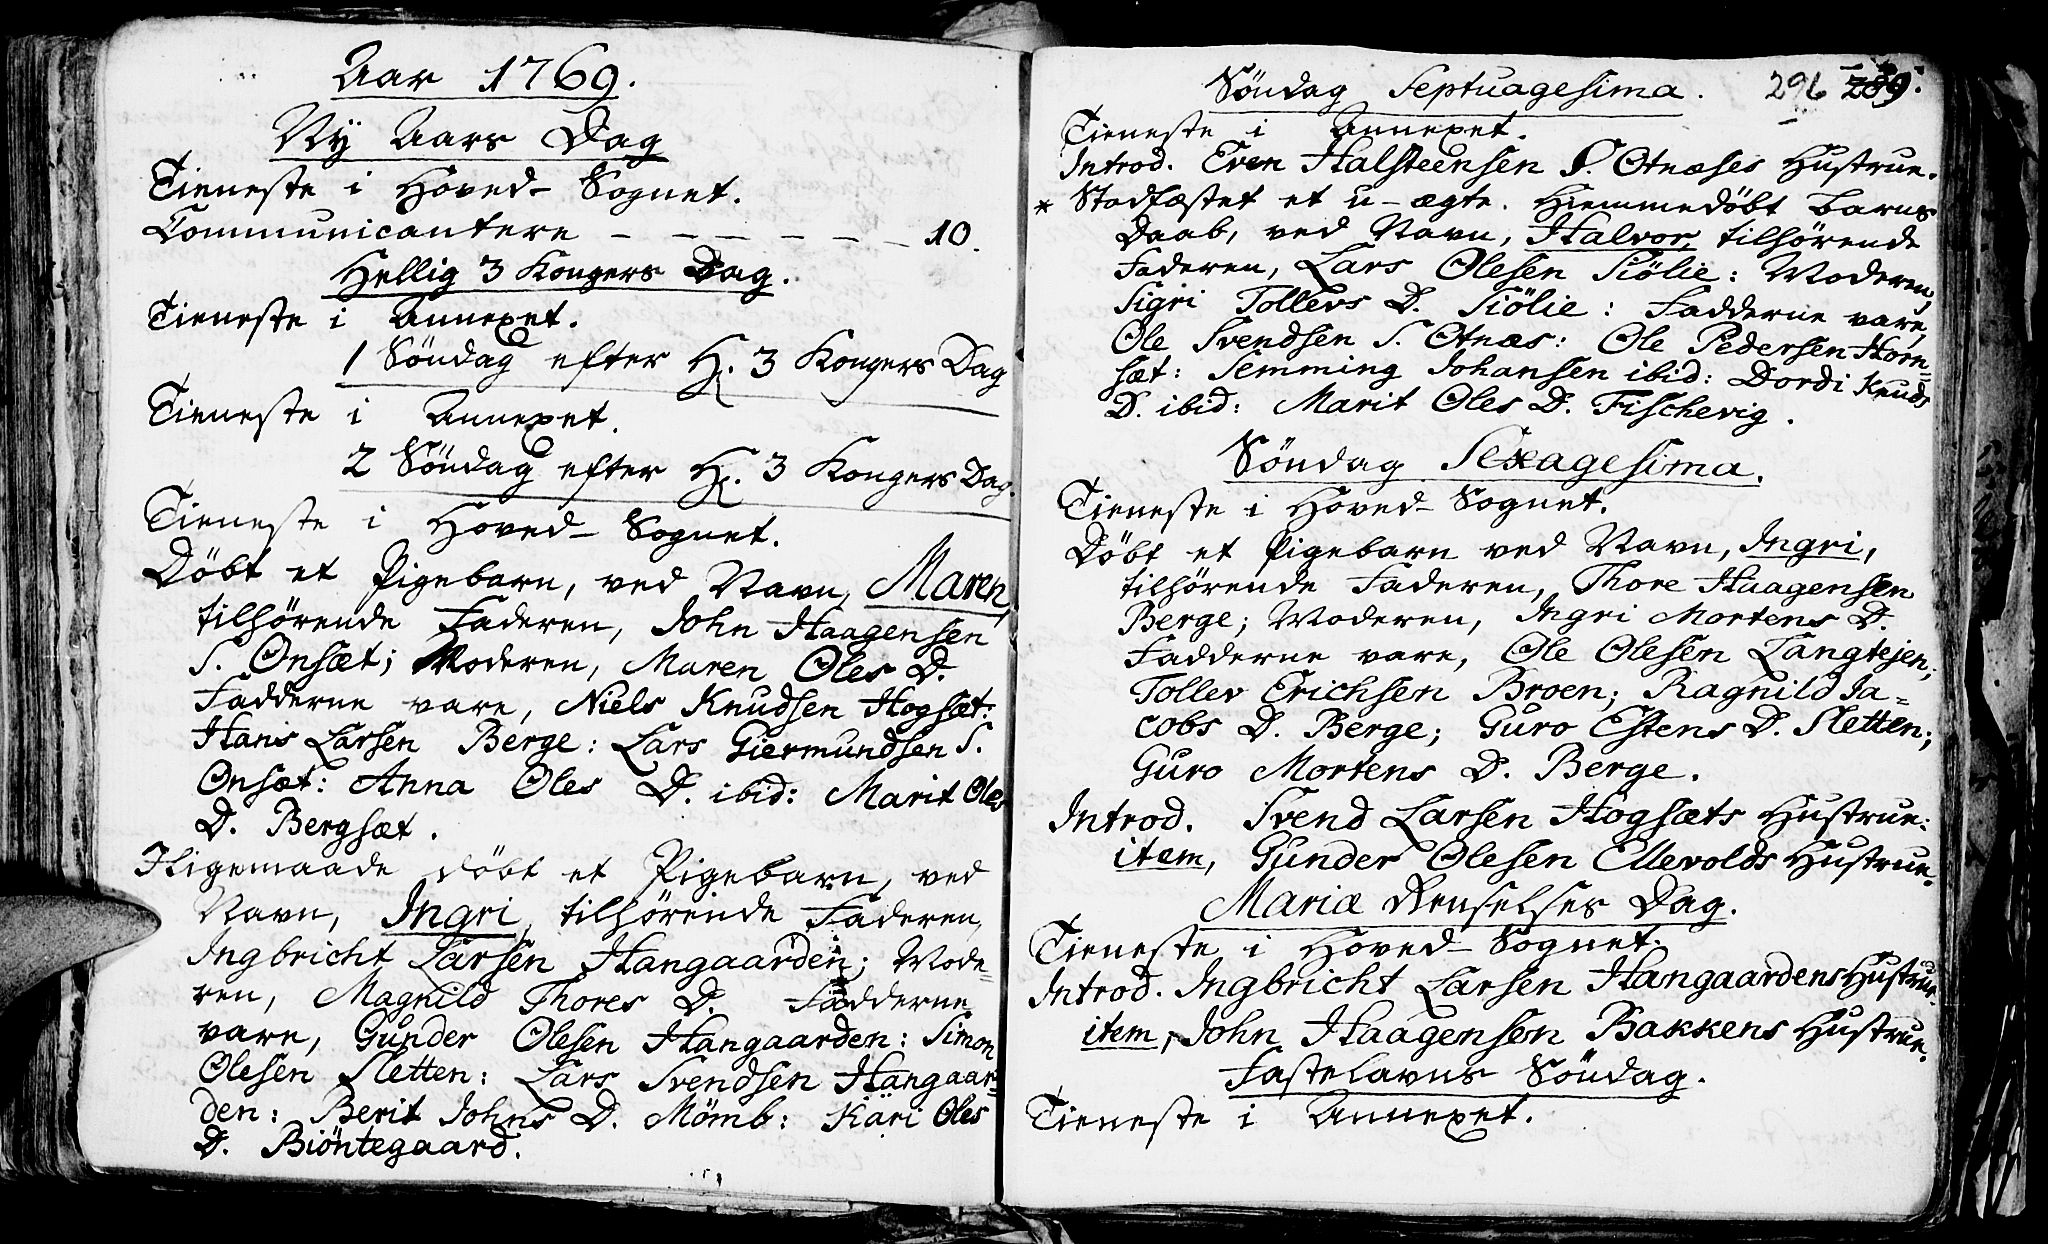 Aar 1769.
Ny Aars Dag
Tieneste i Hoved-Sognet.
Communicantere - - - - - - 10.
Hellig 3 Kongers Dag.
Tieneste i Annexet.
1 Söndag efter H. 3 Kongers Dag
Tieneste i Annexet.
2 Söndag efter H. 3 Kongers Dag.
Tieneste i Hoved-Sognet.
Döbt et Pigebarn, ved Navn, Maren,
tilhörende Faderen, John Haagensen
S. Onsæt; Moderen, Maren Oles D.
Fadderne vare, Niels Knudsen Hogsæt:
Hans Larsen Berge: Lars Giermundsen S.
Onsæt: Anna Oles D. ibid: Marit Oles
D. Bergsæt.
Iligemaade döbt et Pigebarn, ved
Navn, Ingri, tilhörende Faderen,
Ingbricht Larsen Hangaarden; Mode-
ren, Magnild Thores D. Fadderne
vare, Gunder Olesen Hangaarden: Simon
Olesen Sletten: Lars Svendsen Hangaar=
den: Berit Johns D. Mömb: Kari Oles
D. Biöntegaard.
Söndag Septuagesima. 296 289.
Tieneste i Annexet.
Introd. Even Halsteensen S. Otnæses Hustrue.
* Stadfæstet et u-ægte. Hiemmedöbt Barns
Daab, ved Navn, Halvor, tilhörende
Faderen, Lars Olesen Siölie: Moderen,
Sigri Tollevs D. Siölie: Fadderne vare,
Ole Svendsen S. Otnæs: Ole Pedersen Horn=
sæt: Semming Johansen ibid: Dordi Knuds
D. ibid: Marit Oles D. Fischevig.
Söndag Sexagesima.
Tieneste i Hoved-Sognet.
Döbt et Pigebarn ved Navn, Ingri,
tilhörende Faderen, Thore Haagensen
Berge; Moderen, Ingri Mortens D.
Fadderne vare, Ole Olesen Langtejen;
Tollev Erichsen Broen; Ragnild Ja-
cobs D. Berge; Guro Estens D. Sletten;
Guro Mortens D. Berge.
Introd. Svend Larsen Hogsæts Hustrue:
item, Gunder Olesen Ellevolds Hustrue.
Mariæ Renselses Dag.
Tieneste i Hoved-Sognet.
Introd. Ingbricht Larsen Hangaardens Hustrue.
item, John Haagensen Bakkens Hustrue.
Fastelavns Söndag.
Tieneste i Annexet.